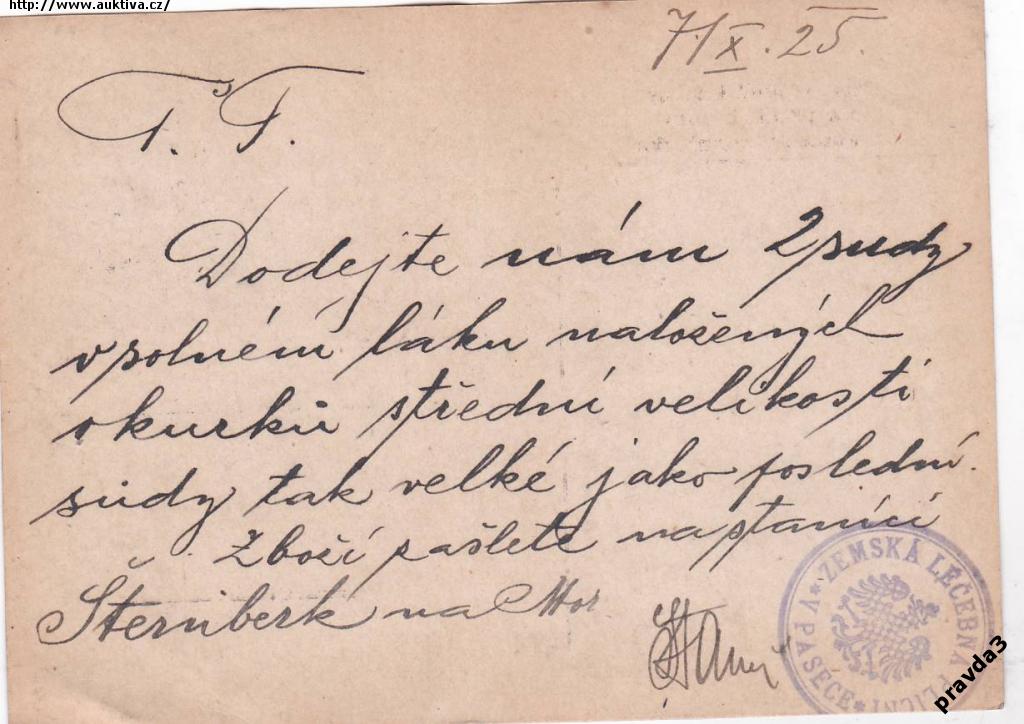 http://www.auktiva.cz/
7/X. 25.
T. T.
Dodejte nám 2 sudy
v solném láku naložených
okurků střední velikosti
sudy tak velké jako poslední.
Zboží zašlete na stanici
Šternberk na Mor
ZEMSKÁ LÉČEBNA PLICNÍ
V PASECE
pravda3